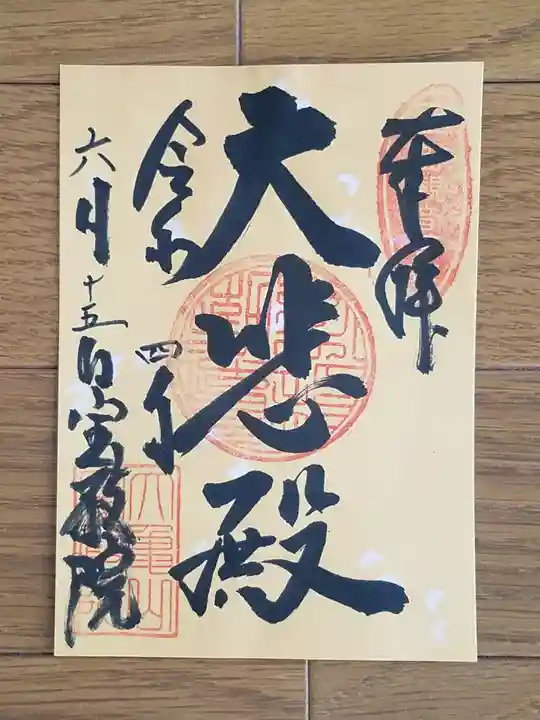 奉拝
大悲殿
令和四年
六月十五日
宝蔵院
六亀山